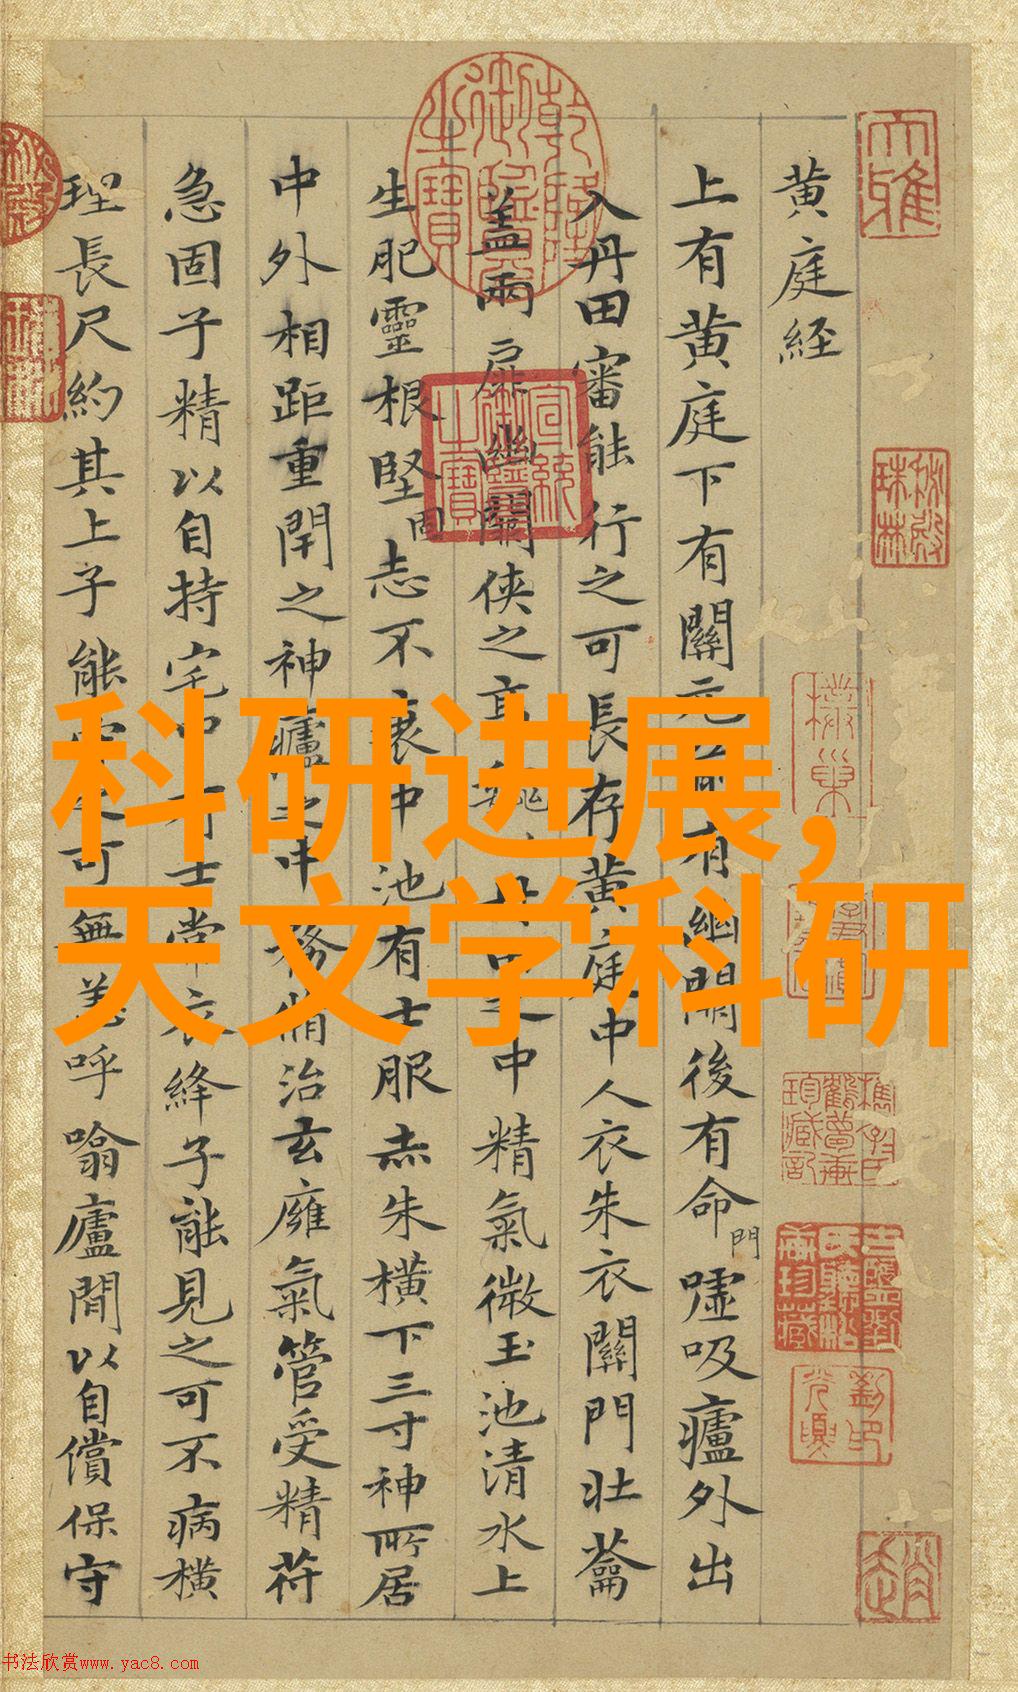 黄庭经
上有黄庭下有關元前有幽關後有命門嘘吸廬外出
入丹田審能行之可長存黄庭中人衣朱衣關門壮蘥
盖兩扉幽關俠之高巍丹田之中精氣微玉池清水上
生肥靈根堅固志不衰中池有士服赤朱横下三寸神所居
中外相距重閇之神廬之中務脩治玄廱氣管受精符
急固子精以自持宅中有士常衣絳子能見之可不病横
理長尺約其上子能守之可無恙呼噏廬間以自償保守
科研进展,
天文学科研
大雅
乾隆御覽之寶
宣統御覽之寶
书法欣赏www.yac8.com